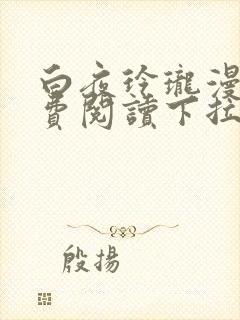 白夜玲瓏漫
費閱讀下拉
殷揚